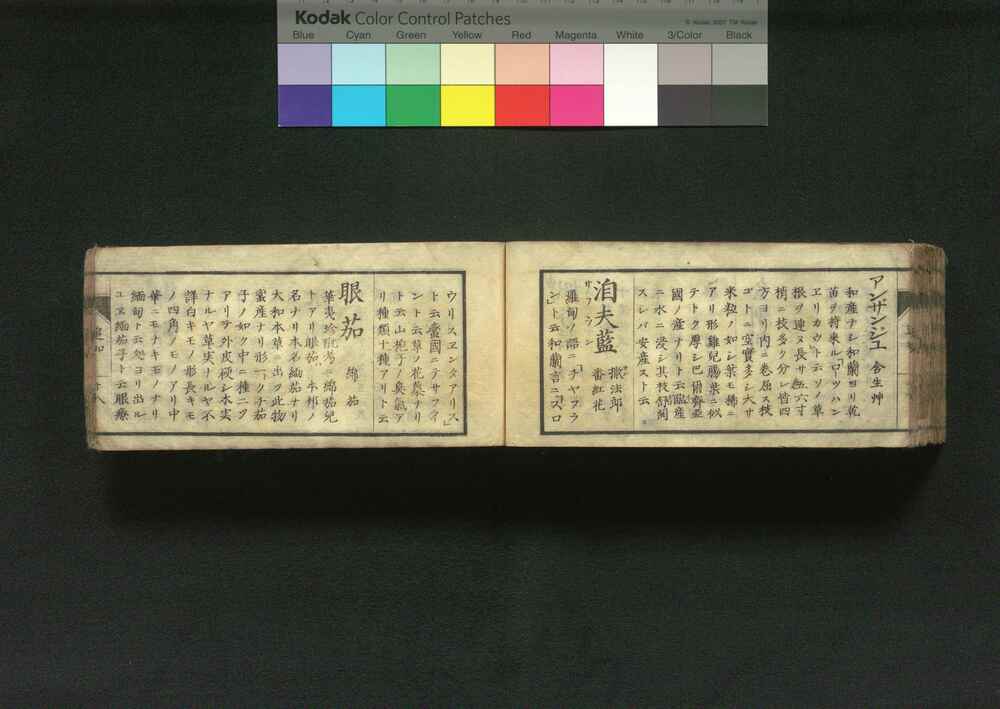 Kodak Color Control Patches
© Kodak, 2007 TM: Kodak
Blue Cyan Green Yellow Red Magenta White 3/Color Black
アンザンジエ 含生艸
和産ナシ和蘭ヨリ乾
苗ヲ持来ル「ローツハン
ヱリカウ」ト云ソノ草
根ヲ連ヌ長サ五六寸
梢ニ枝多ク分レ皆四
方ヨリ内ニ巻屈ス莢
ゴトニ空實多シ大サ
米粒ノ如シ葉モ稀ニ
アリ形雞兒腸葉ニ似
テトク厚シ巴爾齊亜
國ノ産ナリト云臨産
ニ水ニ浸シ其枝舒開
スレバ安産スト云
洎夫藍 撒法郎 番紅花
サフラン
羅甸ノ語ニ「チヤフラ
ン」ト云和蘭言ニ「スロ
ウリスヱンタアリス」
ト云蠻國ニテサフイ
ント云草ノ花蘂ナリ
ト云山慈子ノ奥氣ア
リ種類十種アリト云
眼茄 緬茄
華夷珍玩考ニ緬茄兒
トアリ眼茄ハ本邦ノ
名ナリ本名緬茄ナリ
大和本草ニ出ク此物
蜜産ナリ形一ク子茄
子ノ如ク中ニ種ニク
アリテ外皮硬シ木実
ナルヤ草実ナルヤ不
詳白キモノ形長キモ
ノ四角ノモノアリ中
華ニモナキモノナリ
緬甸ト云処ヨリ出ル
ユヱ緬茄子ト云眼療